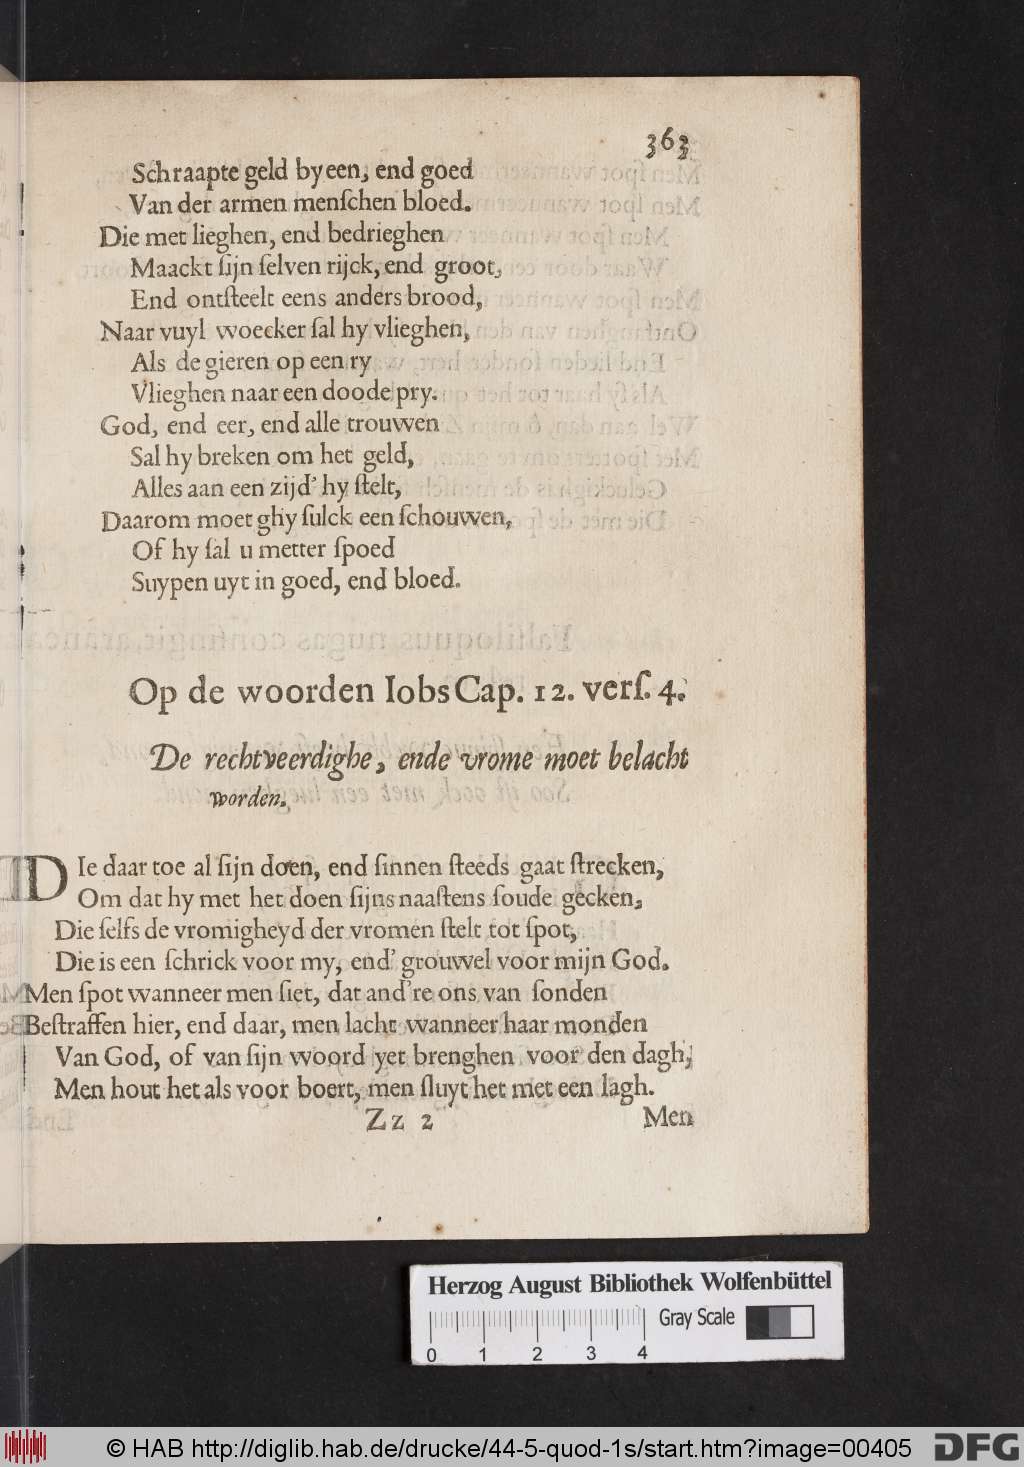 363
Schraapte geld by een, end goed
Van der armen menſchen bloed.
Die met lieghen, end bedrieghen
Maackt ſijn ſelven rijck, end groot,
End ontſteelt eens anders brood,
Naar vuyl woecker ſal hy vlieghen,
Als de gieren op een ry
Vlieghen naar een doode pry.
God, end eer, end alle trouwen
Sal hy breken om het geld,
Alles aan een zijd' hy ſtelt,
Daarom moet ghy ſulck een ſchouwen,
Of hy ſal u metter ſpoed
Suypen uyt in goed, end bloed.
Op de woorden Iobs Cap. 12. verſ. 4.
De rechtveerdighe, ende vrome moet belacht
worden.
DIe daar toe al ſijn doen, end ſinnen ſteeds gaat ſtrecken,
Om dat hy met het doen ſijns naaſtens ſoude gecken,
Die ſelfs de vromigheyd der vromen ſtelt tot ſpot,
Die is een ſchrick voor my, end' grouwel voor mijn God.
Men ſpot wanneer men ſiet, dat and're ons van ſonden
Beſtraffen hier, end daar, men lacht wanneer haar monden
Van God, of van ſijn woord yet brenghen voor den dagh,
Men hout het als voor boert, men ſluyt het met een lagh.
Zz 2
Men
Herzog August Bibliothek Wolfenbüttel
Gray Scale
0 1 2 3 4
© HAB http://diglib.hab.de/drucke/44-5-quod-1s/start.htm?image=00405
DFG